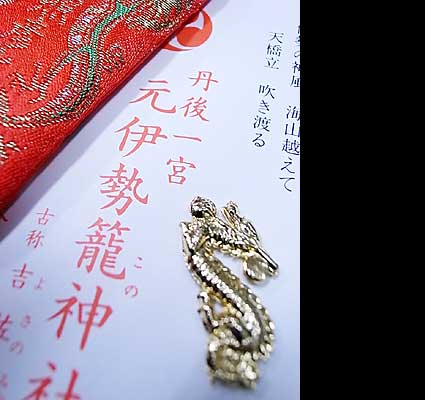 の神風 海山越えて
天橋立 吹き渡る
丹後一宮
元伊勢籠神社
この
古称 吉佐
よさの